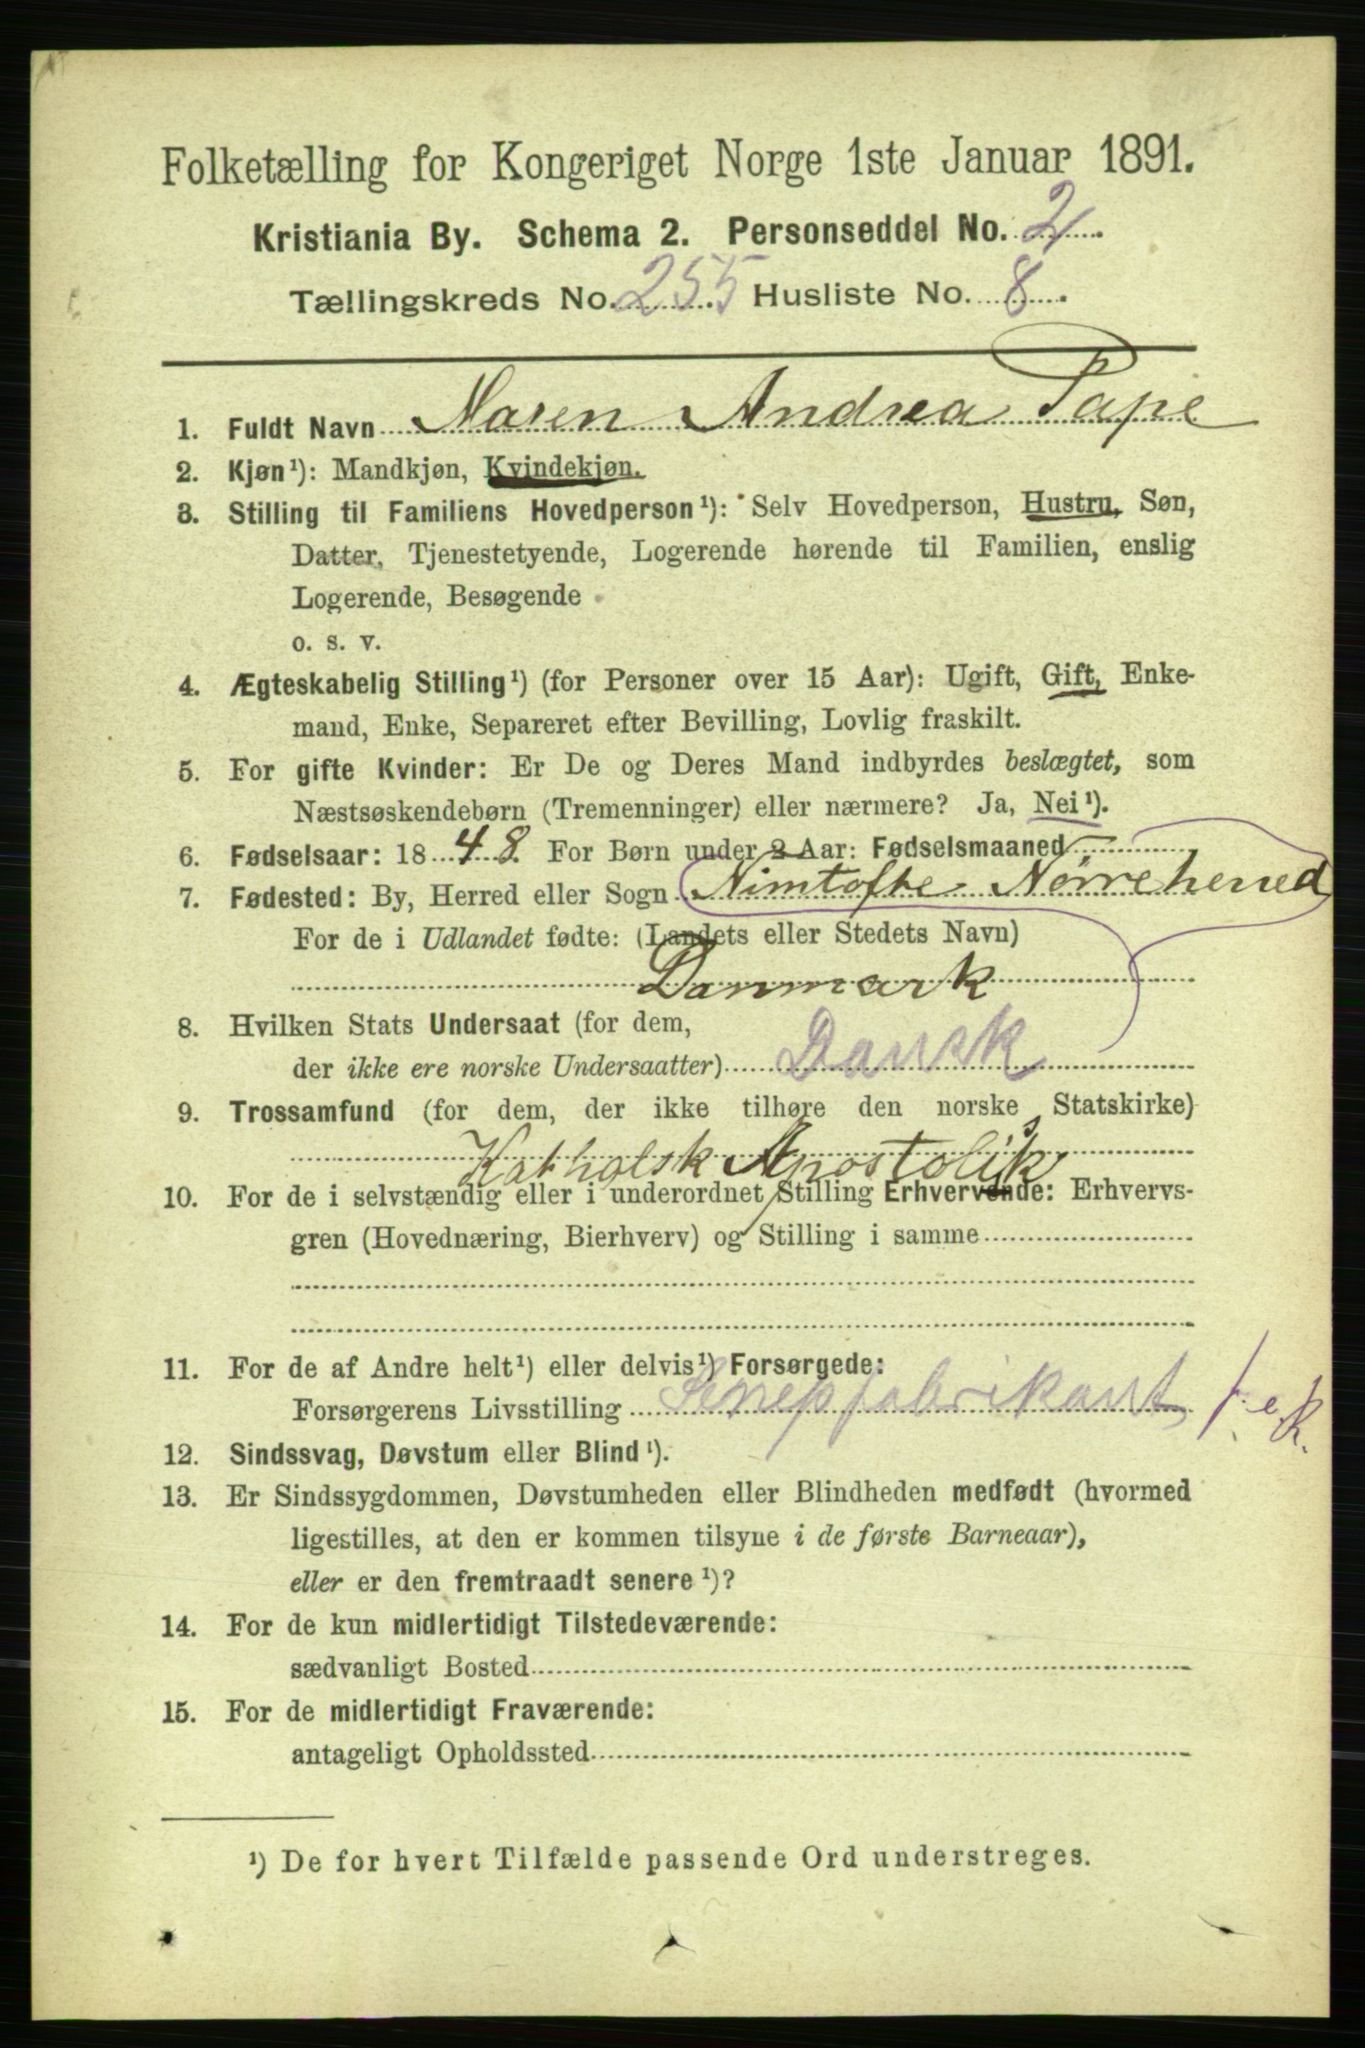 Folketælling for Kongeriget Norge 1ste Januar 1891.
Kristiania By. Schema 2. Personseddel No. 2
Tællingskreds No. 255 Husliste No. 8
1. Fuldt Navn Maren Andrea Pape
2. Kjøn¹): Mandkjøn, Kvindekjøn.
3. Stilling til Familiens Hovedperson¹): Selv Hovedperson, Hustru, Søn,
Datter, Tjenestetyende, Logerende hørende til Familien, enslig
Logerende, Besøgende
o. s. v.
4. Ægteskabelig Stilling¹) (for Personer over 15 Aar): Ugift, Gift, Enke-
mand, Enke, Separeret efter Bevilling, Lovlig fraskilt.
5. For gifte Kvinder: Er De og Deres Mand indbyrdes beslægtet, som
Næstsøskendebørn (Tremenninger) eller nærmere? Ja, Nei¹).
6. Fødselsaar: 1848. For Børn under 2 Aar: Fødselsmaaned
7. Fødested: By, Herred eller Sogn Nimtofte Nörreherred
For de i Udlandet fødte: (Landets eller Stedets Navn)
Danmark
8. Hvilken Stats Undersaat (for dem,
der ikke ere norske Undersaatter) Dansk
9. Trossamfund (for dem, der ikke tilhøre den norske Statskirke)
Katholsk Apostolisk
10. For de i selvstændig eller i underordnet Stilling Erhvervende: Erhvervs-
gren (Hovednæring, Bierhverv) og Stilling i samme
11. For de af Andre helt¹) eller delvis¹) Forsørgede:
Forsørgerens Livsstilling Senepfabrikant
12. Sindssvag, Døvstum eller Blind¹).
13. Er Sindssygdommen, Døvstumheden eller Blindheden medfødt (hvormed
ligestilles, at den er kommen tilsyne i de første Barneaar),
eller er den fremtraadt senere¹)?
14. For de kun midlertidigt Tilstedeværende:
sædvanligt Bosted
15. For de midlertidigt Fraværende:
antageligt Opholdssted
¹) De for hvert Tilfælde passende Ord understreges.